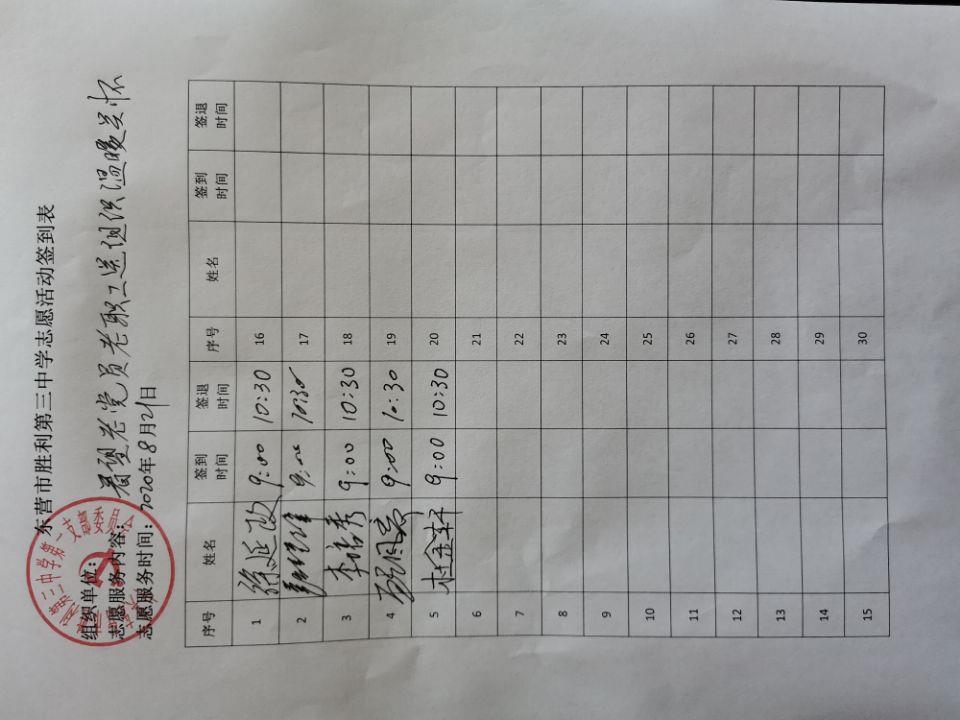 东营市胜利第三中学志愿活动签到表
组织单位:
志愿服务内容: 看望老党员老职工送组织温暖关怀
志愿服务时间: 2020年8月21日
序号 姓名 签到时间 签退时间 序号 姓名 签到时间 签退时间
1 徐延政 9:00 10:30 16
2 9:00 10:30 17
3 9:00 10:30 18
4 9:00 10:30 19
5 9:00 10:30 20
6 21
7 22
8 23
9 24
10 25
11 26
12 27
13 28
14 29
15 30